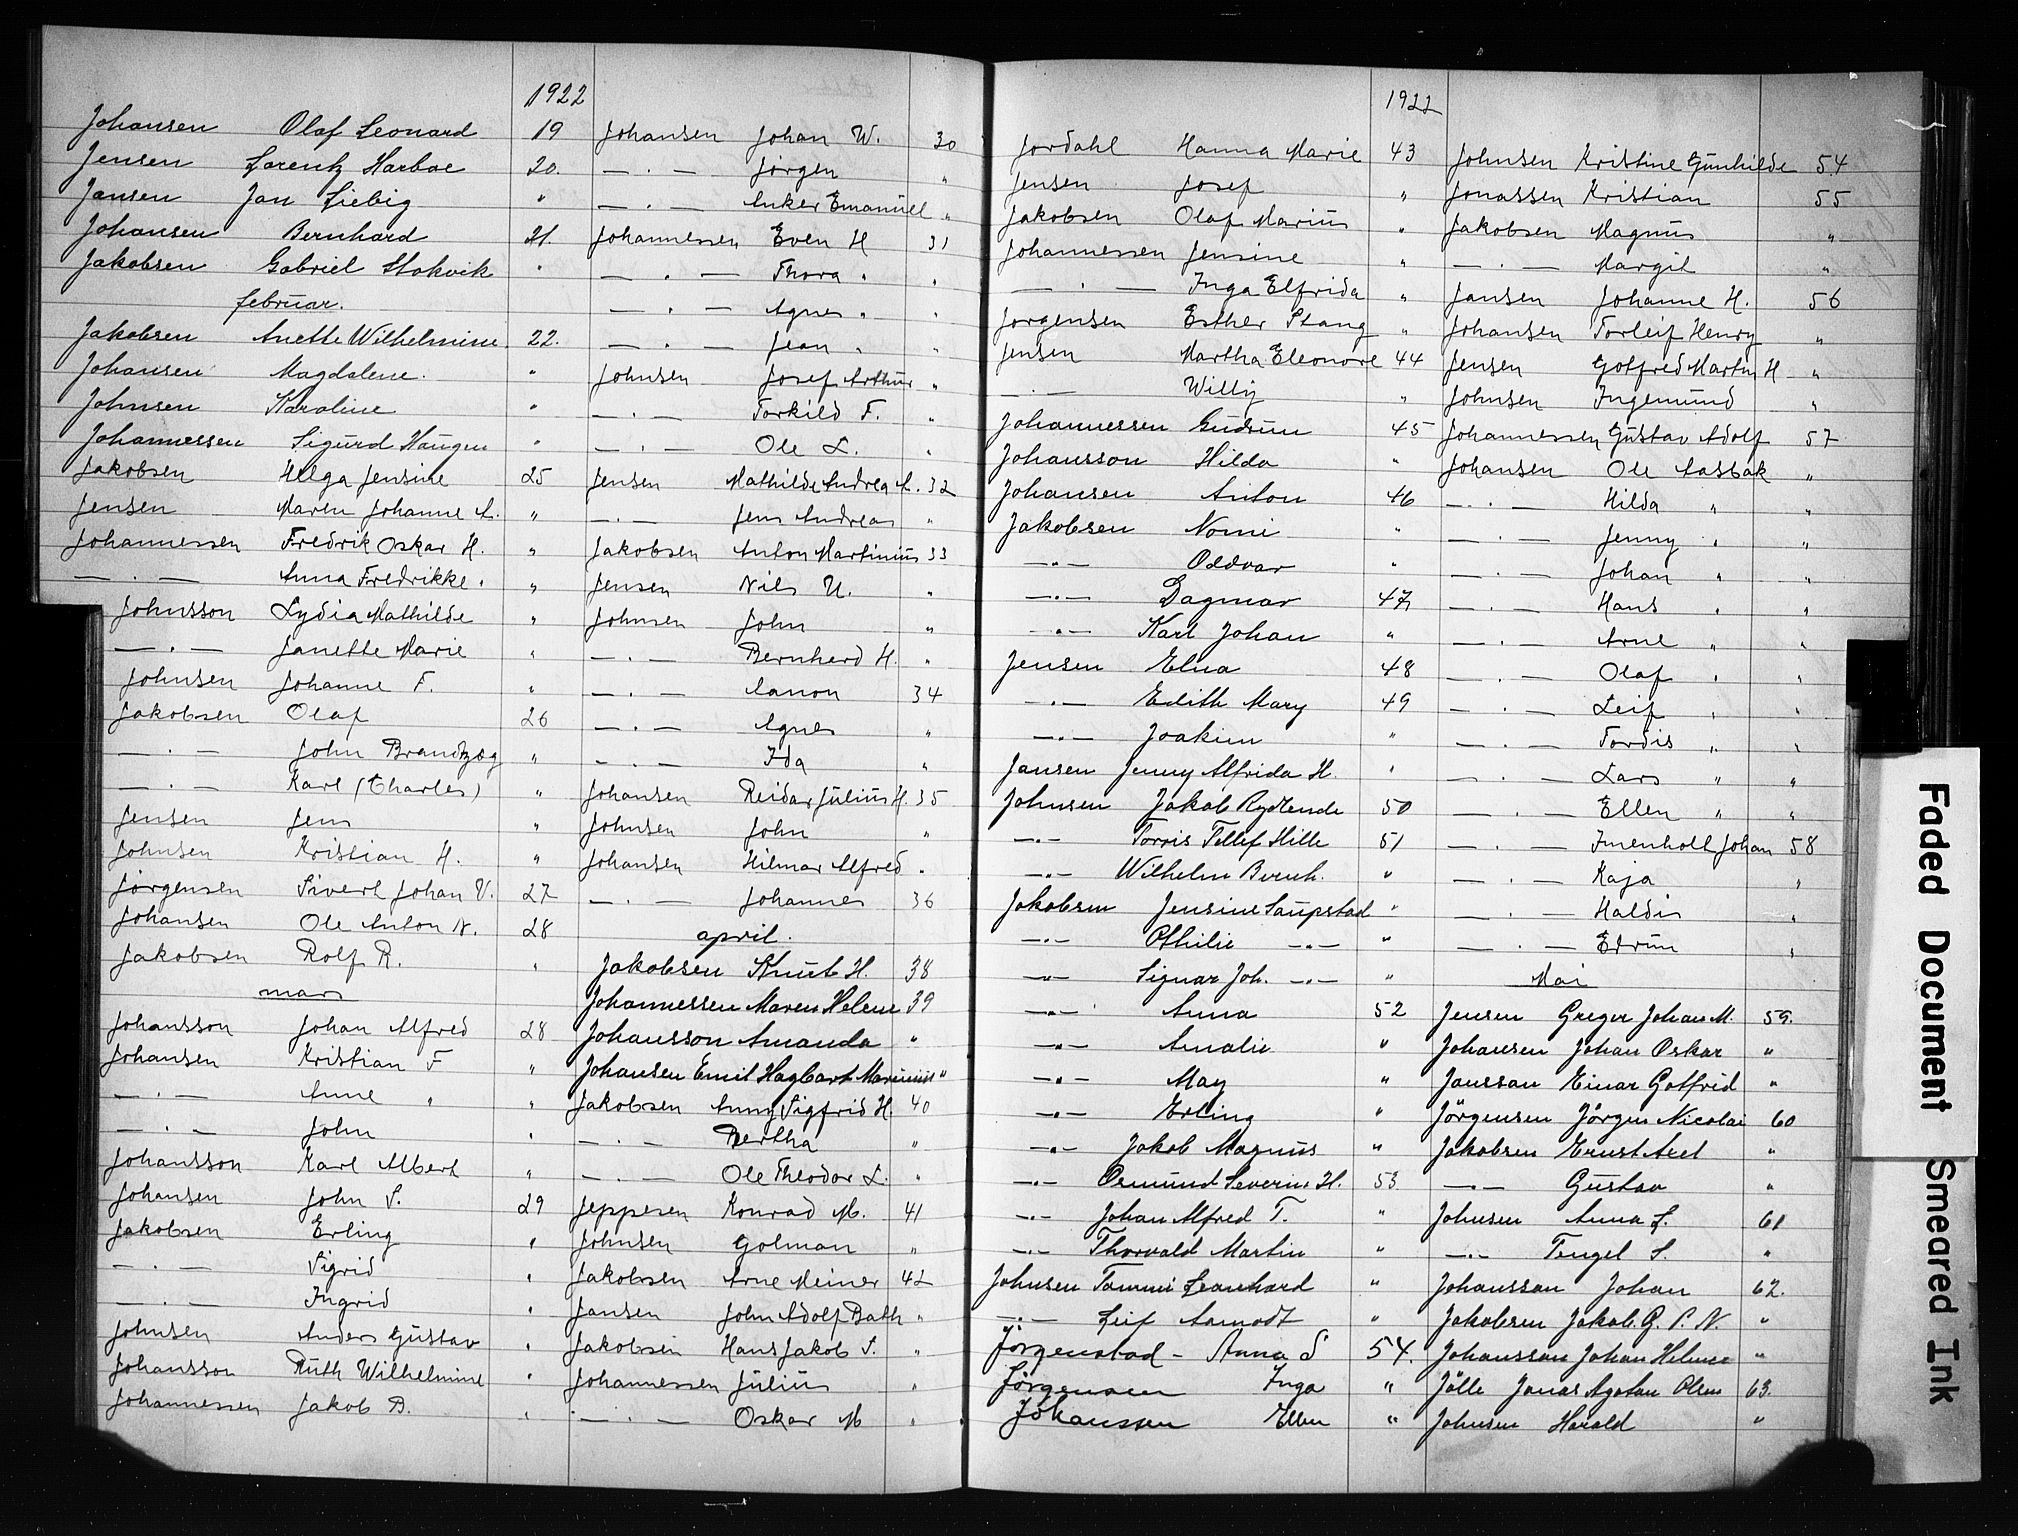 1922
Johansen Olaf Leonard 19
Jensen Lorentz Harboe 20.
Jansen Jan Liebig "
Johansen Bernhard 21.
Jakobsen Gabriel Stokvik "
februar.
Jakobsen Anette Wilhelmine 22.
Johansen Magdalene. "
Johnsen Karoline "
Johannessen Sigurd Haugen "
Jakobsen Helga Jensine 25
Jensen Maren Johanne A. "
Johannessen Fredrik Oskar H. "
— . — Anna Fredrikke " "
Johnsson Lydia Mathilde "
— . — Janette Marie "
Johnsen Johanne F. "
Jakobsen Olaf 26
— . — John Brandtzæg "
— . — Karl (Charles) "
Jensen Jens "
Johnsen Kristian H. "
Jørgensen Sivert Johan V. 27
Johansen Ole Anton N. 28
Jakobsen Rolf R. "
mars
Johansson Johan Alfred 28
Johansen Kristian F "
— . — Anne " "
— . — John "
Johansson Karl Albert "
Johansen John S. 29
Jakobsen Erling "
— . — Sigrid "
— . — Ingrid "
Johnsen Anders Gustav "
Johansson Ruth Wilhelmine "
Johannessen Jakob B. "
Johansen Johan W. 30
— . — Jørgen "
— . — Anker Emanuel "
Johannessen Even H 31
— . — Thora " "
— . — Agnes " "
— . — Jean " "
Johnsen Josef Arthur "
— . — Torkild F. "
— . — Ole L. "
Jensen Mathilde Andrea A. 32
— . — Jens Andreas "
Jakobsen Anton Martinius 33
Jensen Nils U. "
Johnsen John "
— . — Bernherd H. "
— . — Aanon 34
— . — Agnes "
— . — Ida "
Johansen Reidar Julius H. 35
Johnsen John "
Johansen Hilmar Alfred "
— . — Johannes 36
april.
Jakobsen Knut H. 38
Johannessen Maren Helene 39
Johansson Amanda "
Johansen Emil Hagbart Marinius "
Jakobsen Anny Sigfrid H. 40
— . — Bertha "
— . — Ole Theodor L. "
Jeppesen Konrad M. 41
Johnsen Golman "
Jakobsen Arne Meiner 42
Jansen John Adolf Bath "
Jakobsen Hans Jakob S. "
Johannessen Julius "
— . — Oskar M "
1922
Jordahl Hanna Marie 43
Jensen Josef "
Jakobsen Olaf Marius "
Johannessen Jensine "
— . — Inga Elfrida "
Jørgensen Esther Stang "
Jensen Martha Eleonore 44
— . — Willy "
Johannessen Gudrun 45
Johansson Hilda "
Johansen Anton 46
Jakobsen Nomi "
— . — Oddvar "
— . — Dagmar 47
— . — Karl Johan "
Jensen Elna 48
— . — Edith Mary 49
— . — Joakim "
Jansen Jenny Alfrida H. "
Johnsen Jakob Rydlende 50
— . — Torris Tellef Hille 51
— . — Wilhelm Bernh. "
Jakobsen Jensine Saupstad "
— . — Othilie — . — "
— . — Signar Joh. — . — "
— . — Anna 52
— . — Amalie "
— . — May "
— . — Erling "
— . — Jakob Magnus "
— . — Osmund Severin H. 53
— . — Johan Alfred T. "
— . — Thorvald Martin "
Johnsen Tommi Leonhard "
— . — Leif Aamodt "
Jørgenstad - Anna S 54.
Jørgensen Inga "
Johanssen Ellen "
Johnsen Kristine Gunhilde 54
Jonassen Kristian 55
Jakobsen Magnus "
— . — Margit "
Jansen Johanne H. 56
Johansen Torleif Henry "
Jensen Gotfred Martin H "
Johnsen Ingemund "
Johannessen Gustav Adolf 57
Johansen Ole Aasbak "
— . — Hilda " "
— . — Jenny " "
— . — Johan " "
— . — Hans " "
— . — Arne " "
— . — Olaf " "
— . — Leif " "
— . — Tordis " "
— . — Lars " "
— . — Ellen " "
— . — Imenholt Johan 58
— . — Kaja "
— . — Haldis "
— . — Edrun "
Mai
Jensen Greger Johan M. 59.
Johansen Johan Oskar "
Jansson Einar Gotfrid "
Jörgensen Jörgen Nicolai 60
Jakobsen Ernst Axel "
— . — Gustav "
Johnsen Anna L. 61
— . — Tengel S. "
Johansson Johan 62.
Jakobsen Jakob. G. P. N. "
Johansson Johan Helmer "
Jölle Jonas Agaton Olsen 63.
Johnsen Harald "
Faded Document Smeared Ink